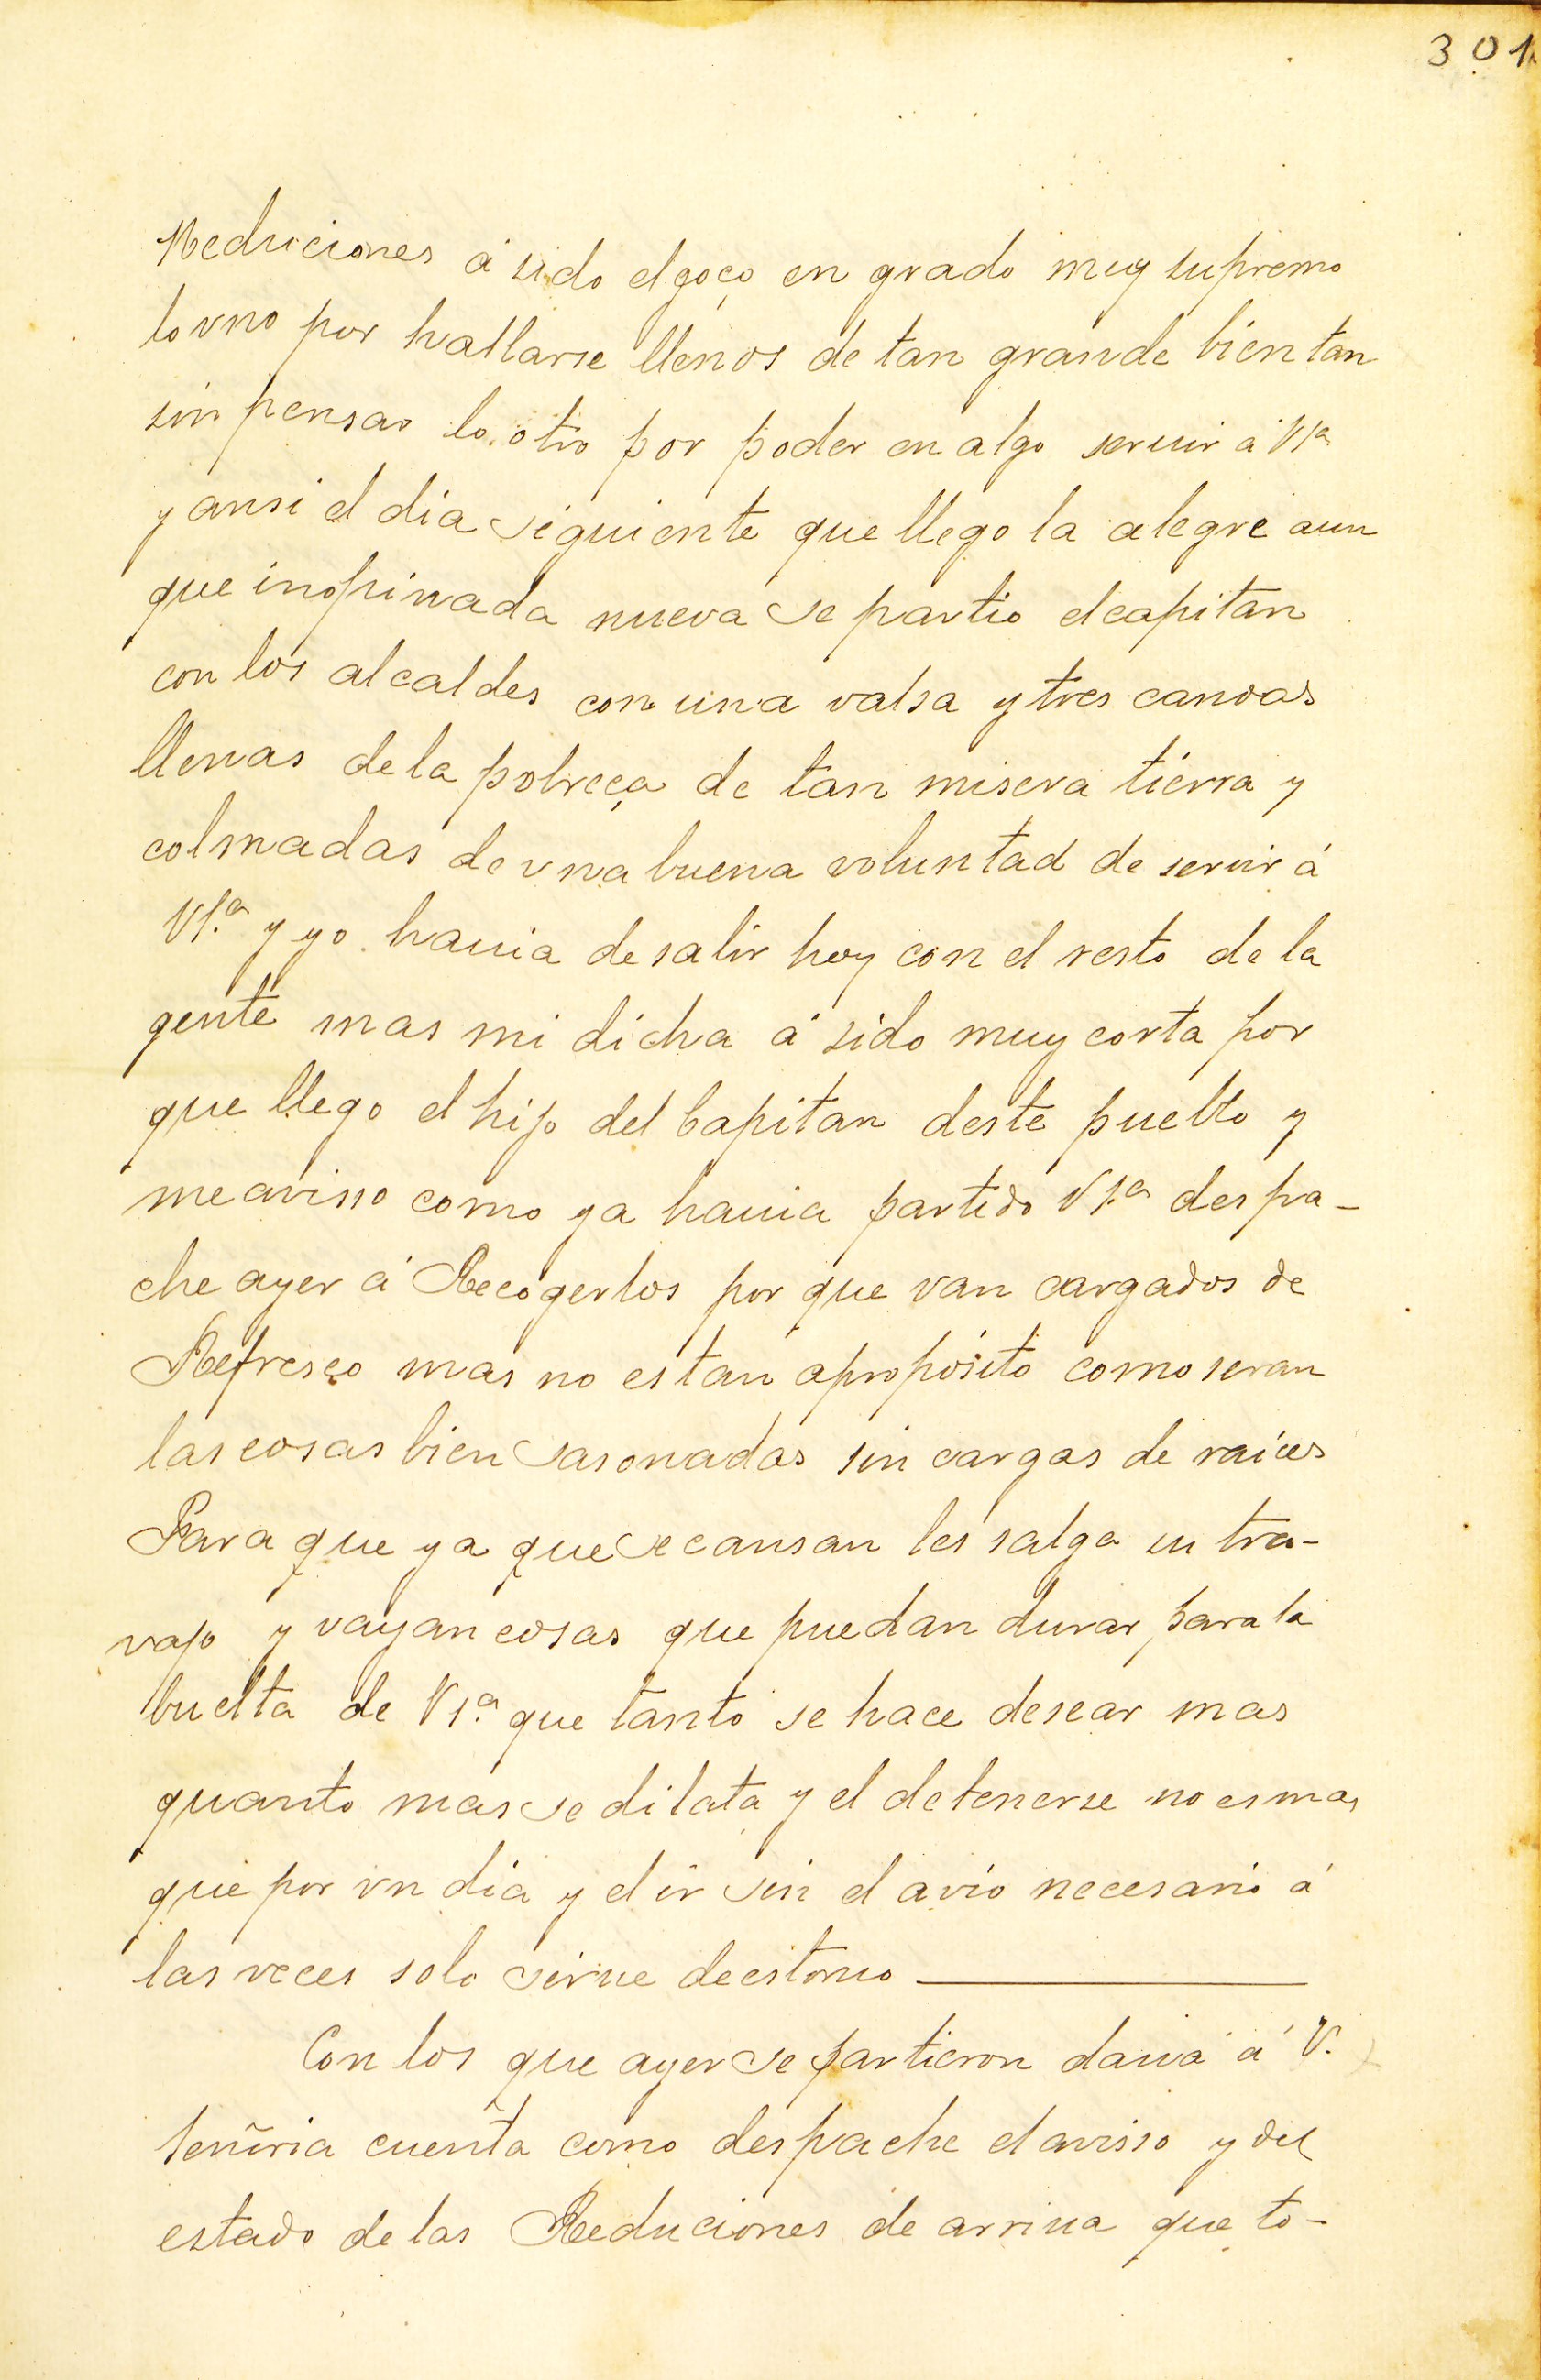 301
Reduciones á sido el goço en grado muy supremo
lo vno por hallarse llenos de tan grande bien tan
sin pensar lo otro por poder en algo seruir á Vsª
y ansi el dia siguiente que llego la alegre aun
que inopinada nueva se partio el capitan
con los alcaldes con una valsa y tres canoas
llenas de la pobreça de tan misera tierra y
colmadas de vna buena voluntad de seruir á
Vs.ª y yo hauia de salir hoy con el resto de la
gente mas mi dicha á sido muy corta por
que llego el hijo del Capitan deste pueblo y
me avisso como ya hauia partido Vs.ª despa-
che ayer á Recogerlos por que van cargados de
Refresco mas no estan aproposito como seran
las cosas bien sasonadas sin cargas de raices
Para que ya que se cansan les salga su tra-
vajo y vayan cosas que puedan durar para la
buelta de Vs.ª que tanto se hace desear mas
quanto mas se dilata y el detenerse no es mas
que por vn dia y el ir sin el avio necesario á
las veces solo sirue de estoruo
Con los que ayer se partieron daua á V.
señiria cuenta como despache el avisso y del
estado de las Reduciones de arriua que to-